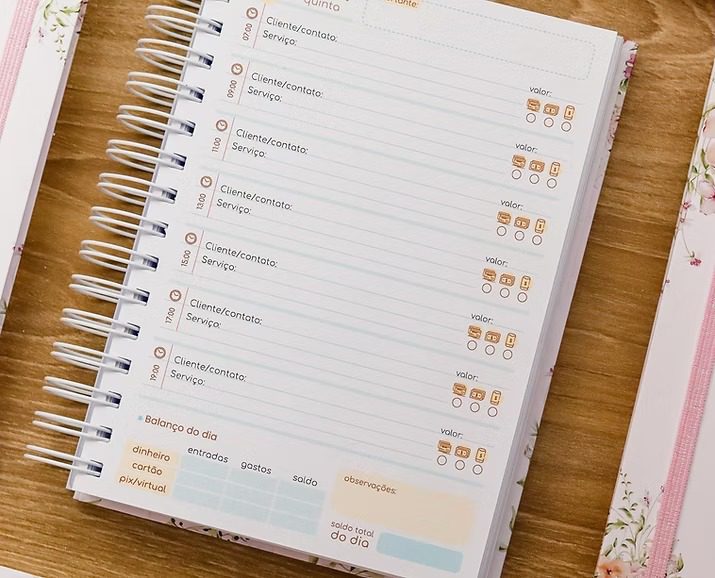 quinta
07:00
Cliente/contato:
Serviço:
09:00
Cliente/contato:
Serviço:
valor:
11:00
Cliente/contato:
Serviço:
valor:
13:00
Cliente/contato:
Serviço:
valor:
15:00
Cliente/contato:
Serviço:
valor:
17:00
Cliente/contato:
Serviço:
valor:
19:00
Cliente/contato:
Serviço:
valor:
valor:
Balanço do dia
entradas gastos saldo
dinheiro
cartão
pix/virtual
observações:
saldo total
do dia